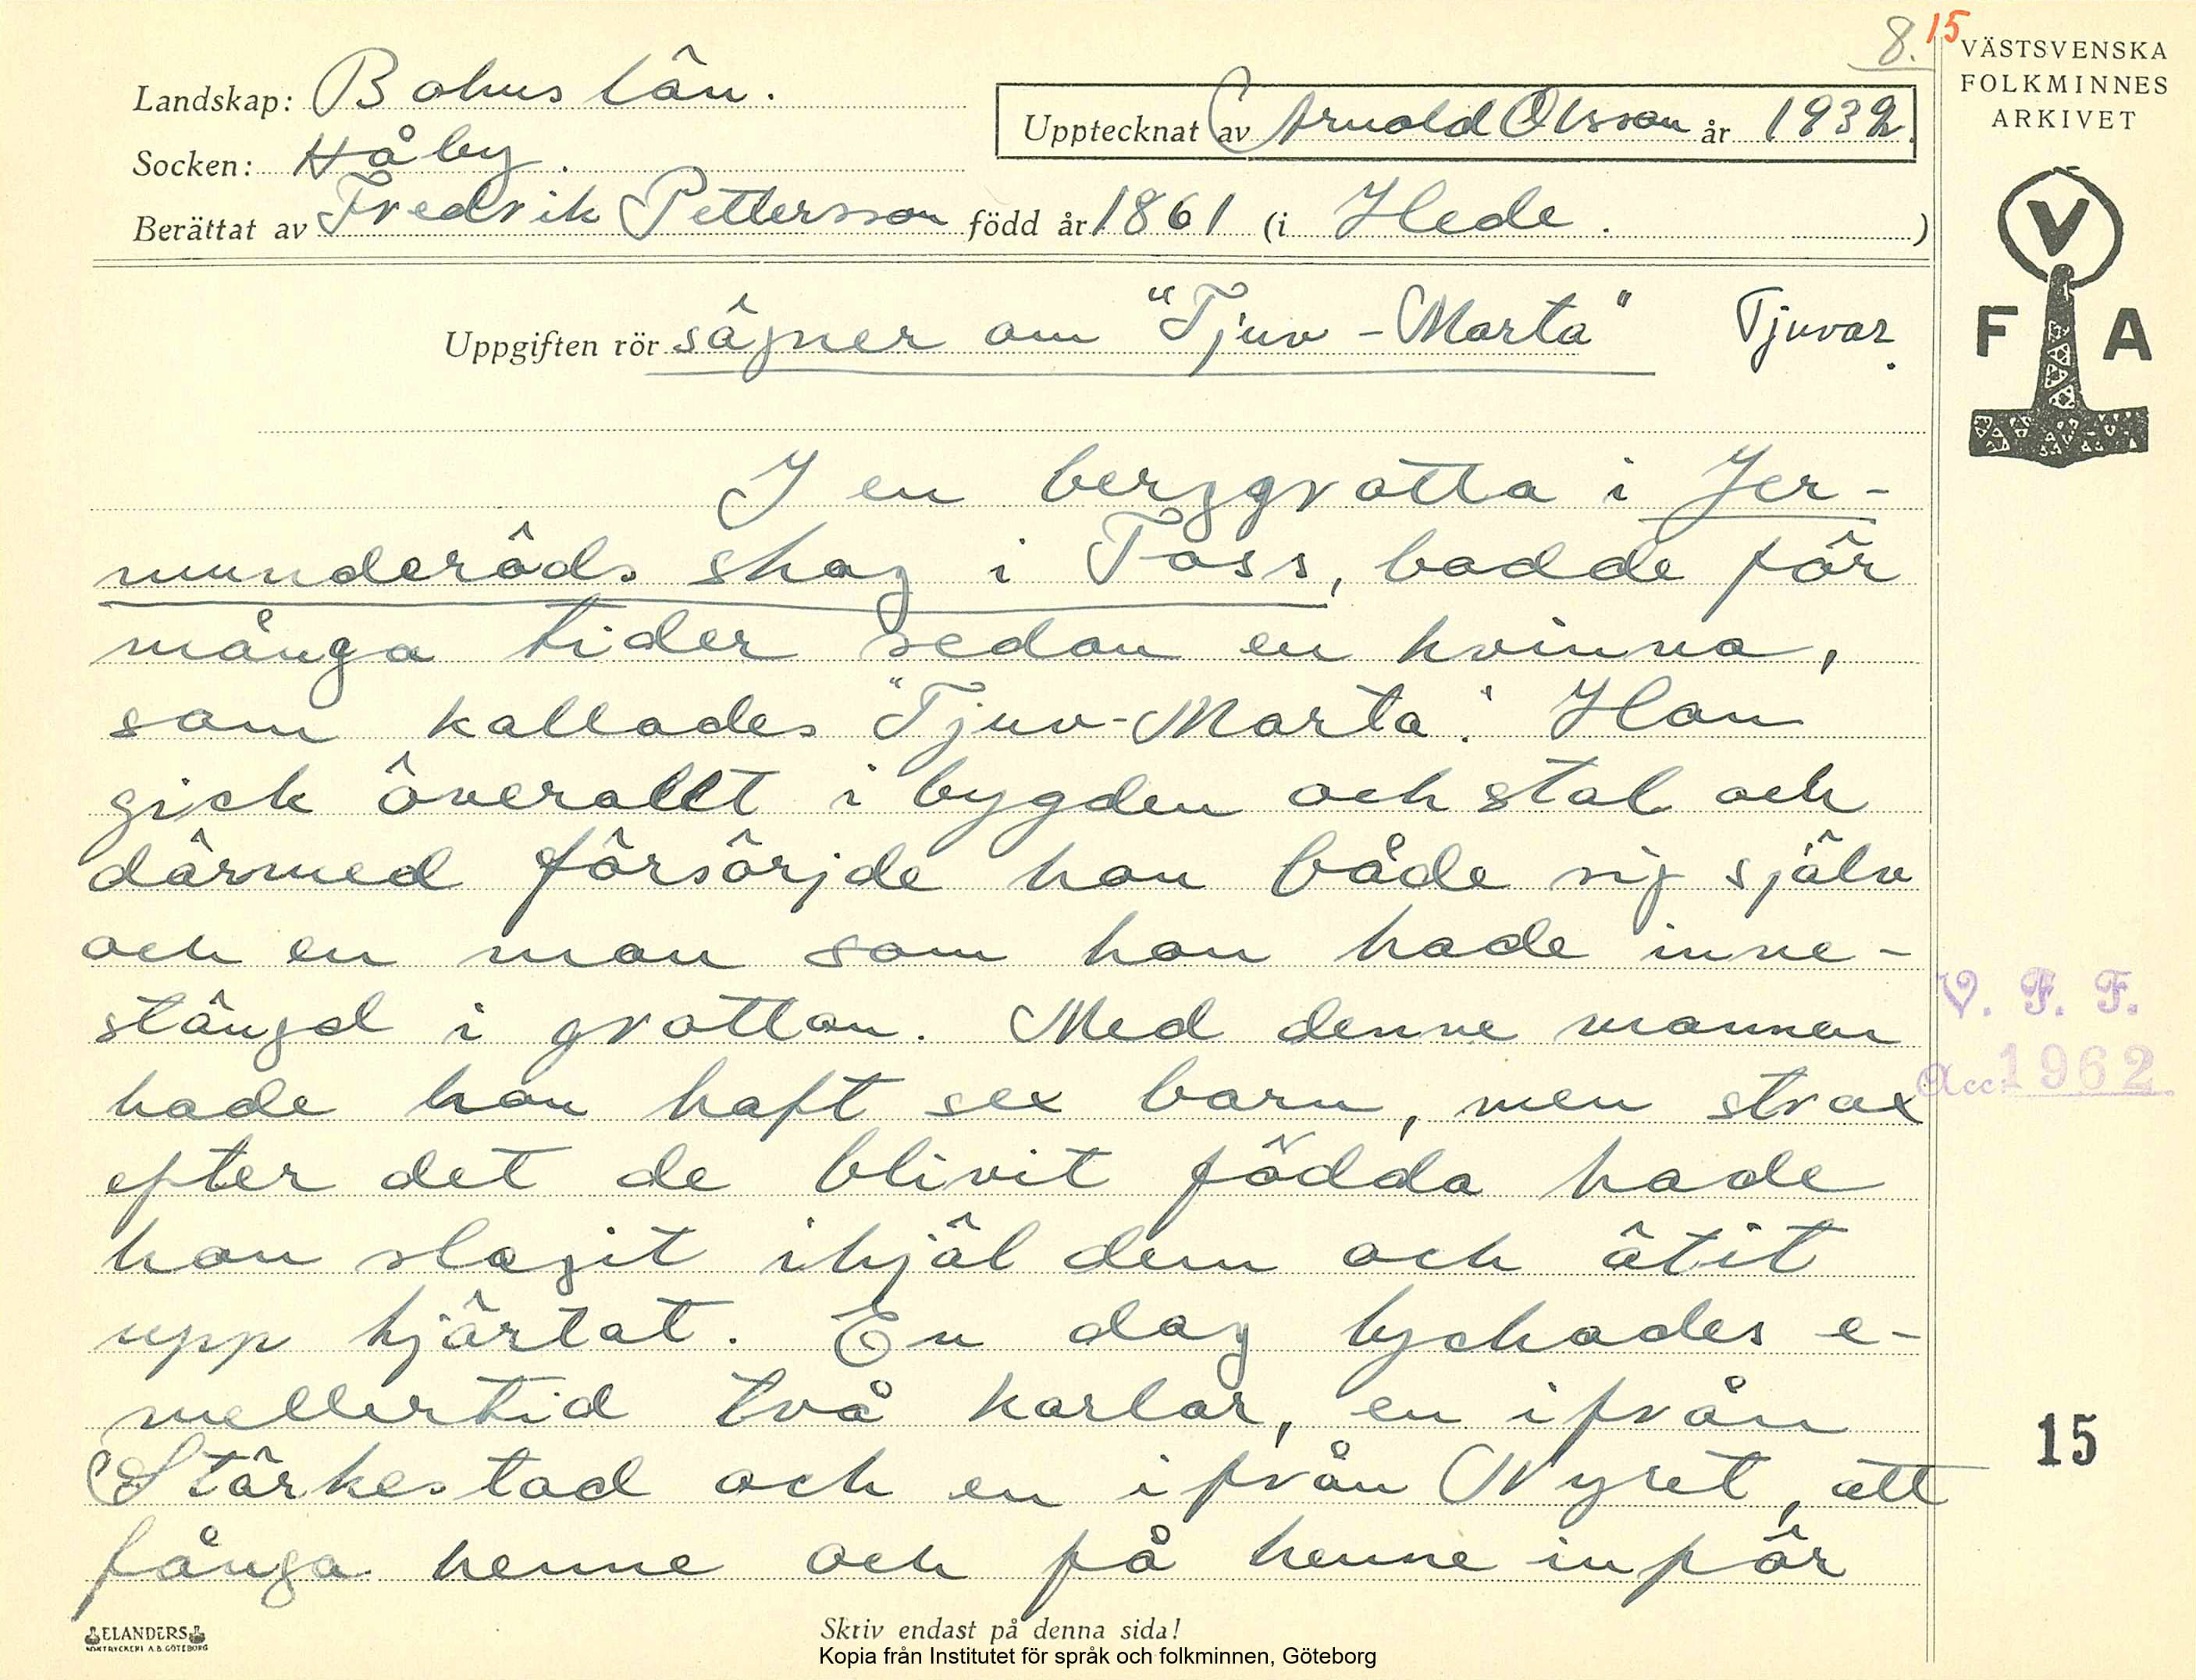 8. 15
VÄSTSVENSKA
FOLKMINNES
ARKIVET
Landskap: Bohuslän.
Upptecknat av Arnold Olsson år 1932.
Socken: Håby.
Berättat av Fredrik Pettersson född år 1861 (i Hede.)
V
F A
Uppgiften rör sägner om "Tjuv-Marta" Tjuvar.
I en berggrotta i Jer-
munderöds skog i Foss, bodde för
många tider sedan en kvinna,
som kallades "Tjuv-Marta". Hon
gick överallt i bygden och stal och
därmed försörjde hon både sig själv
och en man som hon hade inne-
stängd i grottan. Med denne mannen
hade hon haft sex barn, men strax
efter det de blivit födda hade
hon slagit ihjäl dem och ätit
upp hjärtat. En dag lyckades e-
mellertid två karlar, en ifrån
Stärkestad och en ifrån Nyret, att
fånga henne och få henne inför
V. F. F.
Acc: 1962
15
ELANDERS
BOKTRYCKERI A.B. GÖTEBORG
Skriv endast på denna sida!
Kopia från Institutet för språk och folkminnen, Göteborg